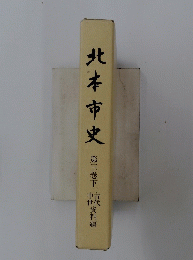 北本市史
第三巻下
古代
中世
資料編